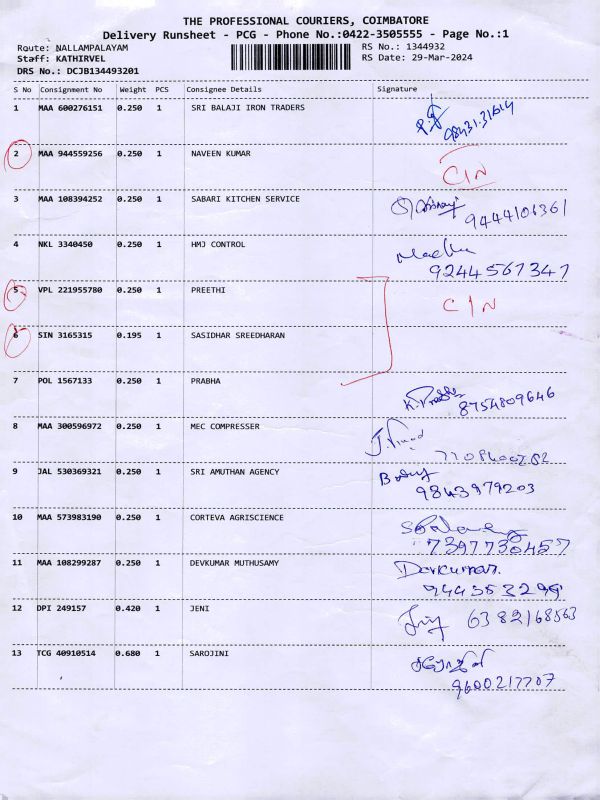 THE PROFESSIONAL COURIERS, COIMBATORE
Delivery Runsheet - PCG - Phone No.:0422-3505555 - Page No.:1
Route: NALLAMPALAYAM RS No.: 1344932
Staff: KATHIRVEL RS Date: 29-Mar-2024
DRS No.: DCJB134493201
S No Consignment No Weight PCS Consignee Details Signature
1 MAA 600276151 0.250 1 SRI BALAJI IRON TRADERS
2 MAA 944559256 0.250 1 NAVEEN KUMAR C/N
3 MAA 108394252 0.250 1 SABARI KITCHEN SERVICE
9444106361
4 NKL 3340450 0.250 1 HMJ CONTROL Madhu
9244567347
5 VPL 221955780 0.250 1 PREETHI C/N
6 SIN 3165315 0.195 1 SASIDHAR SREEDHARAN
7 POL 1567133 0.250 1 PRABHA
8754809646
8 MAA 300596972 0.250 1 MEC COMPRESSER
9 JAL 530369321 0.250 1 SRI AMUTHAN AGENCY
9843979203
10 MAA 573983190 0.250 1 CORTEVA AGRISCIENCE
7397730457
11 MAA 108299287 0.250 1 DEVKUMAR MUTHUSAMY Devkumar.
12 DPI 249157 0.420 1 JENI 6382168563
13 TCG 40910514 0.680 1 SAROJINI சரோஜினி
9600217707